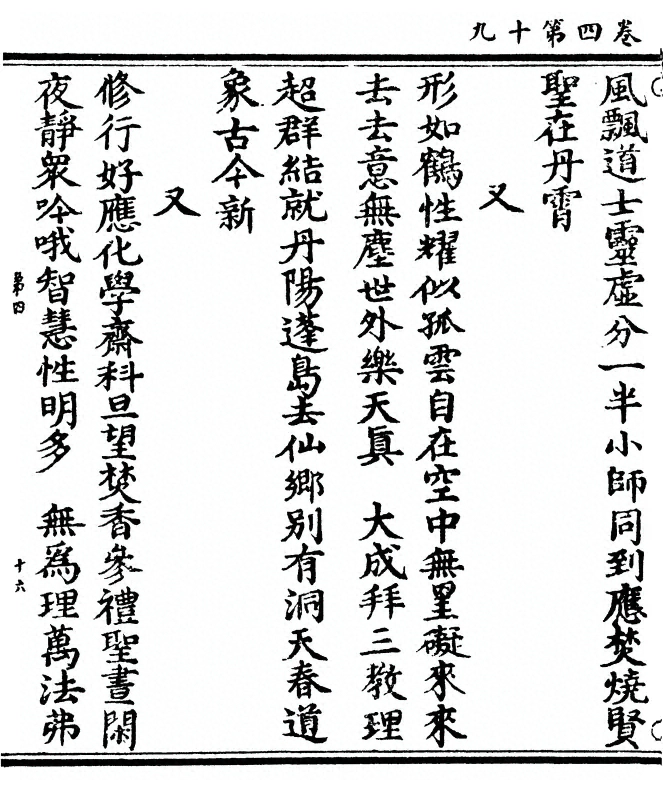 卷四第十九
風飄道士靈虛分一半小師同到應焚燒賢
聖在丹霄
又
形如鶴性耀似孤雲自在空中無罣礙來來
去去意無塵世外樂天眞　大成拜三教理
超群結就丹陽蓬島去仙鄉别有洞天春道
象古今新
又
修行好應化學齋科旦望焚香參禮聖晝閑
夜靜衆吟哦智慧性明多　無爲理萬法弗
第四
十六